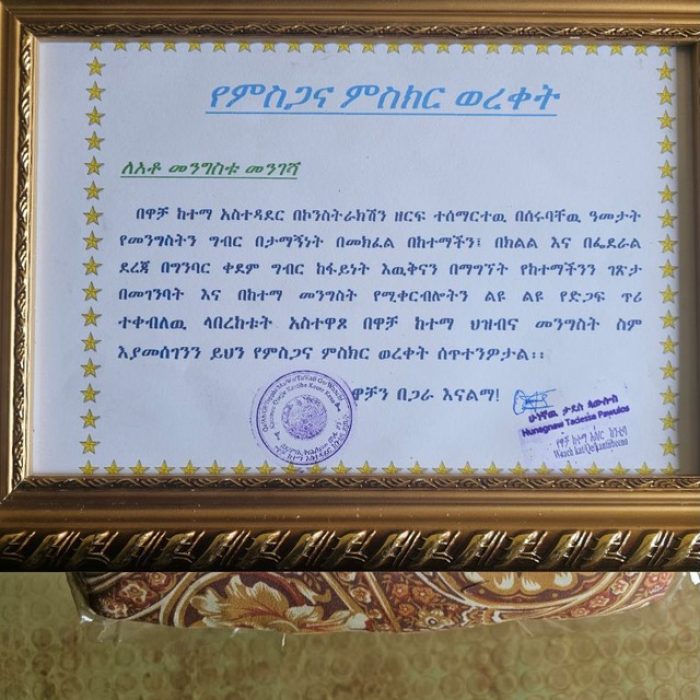 የምስጋና ምስክር ወረቀት
ለአቶ መንግስቱ መንገሻ
በዋቻ ከተማ አስተዳደር በኮንስትራክሽን ዘርፍ ተሰማርተዉ በሰሩባቸዉ ዓመታት
የመንግስትን ግብር በታማኝነት በመክፈል በከተማችን፤ በክልል እና በፌደራል
ደረጃ በግንባር ቀደም ግብር ከፋይነት እዉቅናን በማግኘት የከተማችንን ገጽታ
በመገንባት እና በከተማ መንግስት የሚቀርብሎትን ልዩ ልዩ የድጋፍ ጥሪ
ተቀብለዉ ላበረከቱት አስተዋጾ በዋቻ ከተማ ህዝብና መንግስት ስም
እያመሰገንን ይህን የምስጋና ምስክር ወረቀት ሰጥተንዎታል፡፡
ዋቻን በጋራ እናልማ!
ሁነኛዉ ታደሰ ጳዉሎስ
Hunegnaw Tadesse Pawulos
የዋቻ ከተማ አስተዳር ከንቲባ